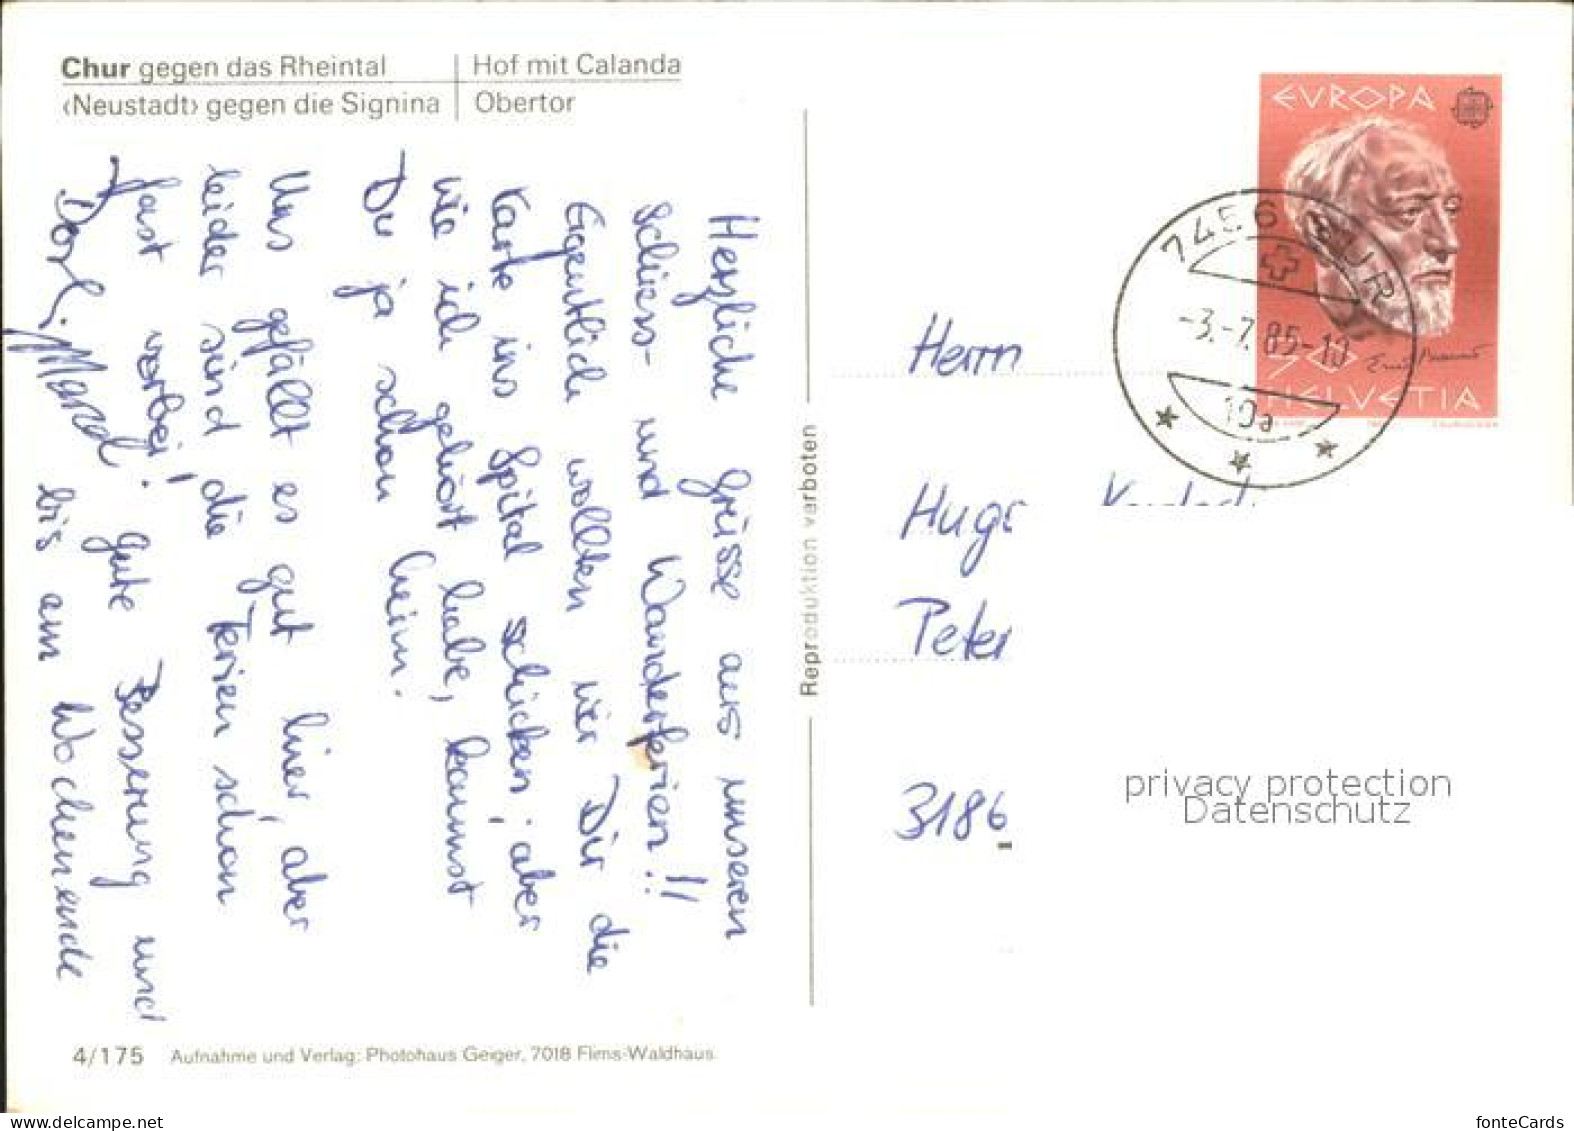 Chur gegen das Rheintal | Hof mit Calanda
‹Neustadt› gegen die Signina | Obertor
Herzliche Grüsse aus unseren
schiess- und Wanderferien!!
Eigentlich wollten wir Dir die
Karte ins Spital schicken; aber
wie ich gehört habe, kannst
Du ja schon heim.
Uns gefällt es gut hier, aber
leider sind die Ferien schon
fast vorbei! Gute Besserung und
bis am Wochenende
4/175 Aufnahme und Verlag: Photohaus Geiger, 7018 Flims-Waldhaus
Reproduktion verboten
EVROPA
HELVETIA
-3.-7.85-10
10a
Herrn
Peter
3186
privacy protection
Datenschutz
www.delcampe.net
fonteCards